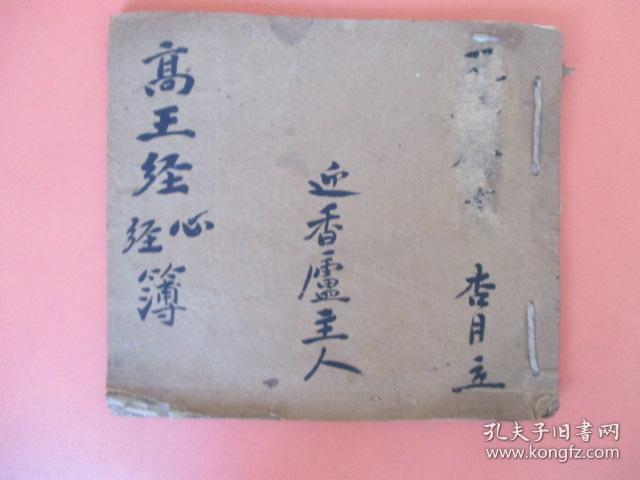 杏月立
迎香廬主人
高王经
心
经
簿
孔夫子旧书网
www.kongfz.com